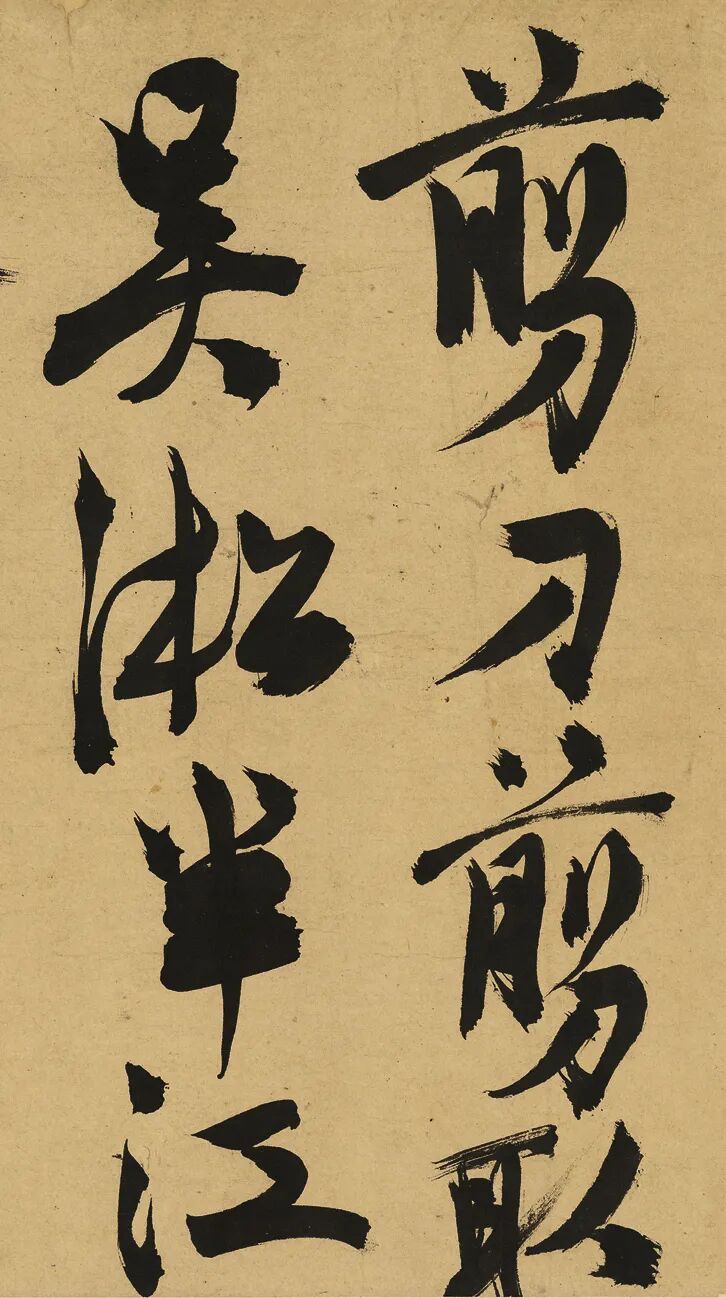 剪刀剪取
吴淞半江